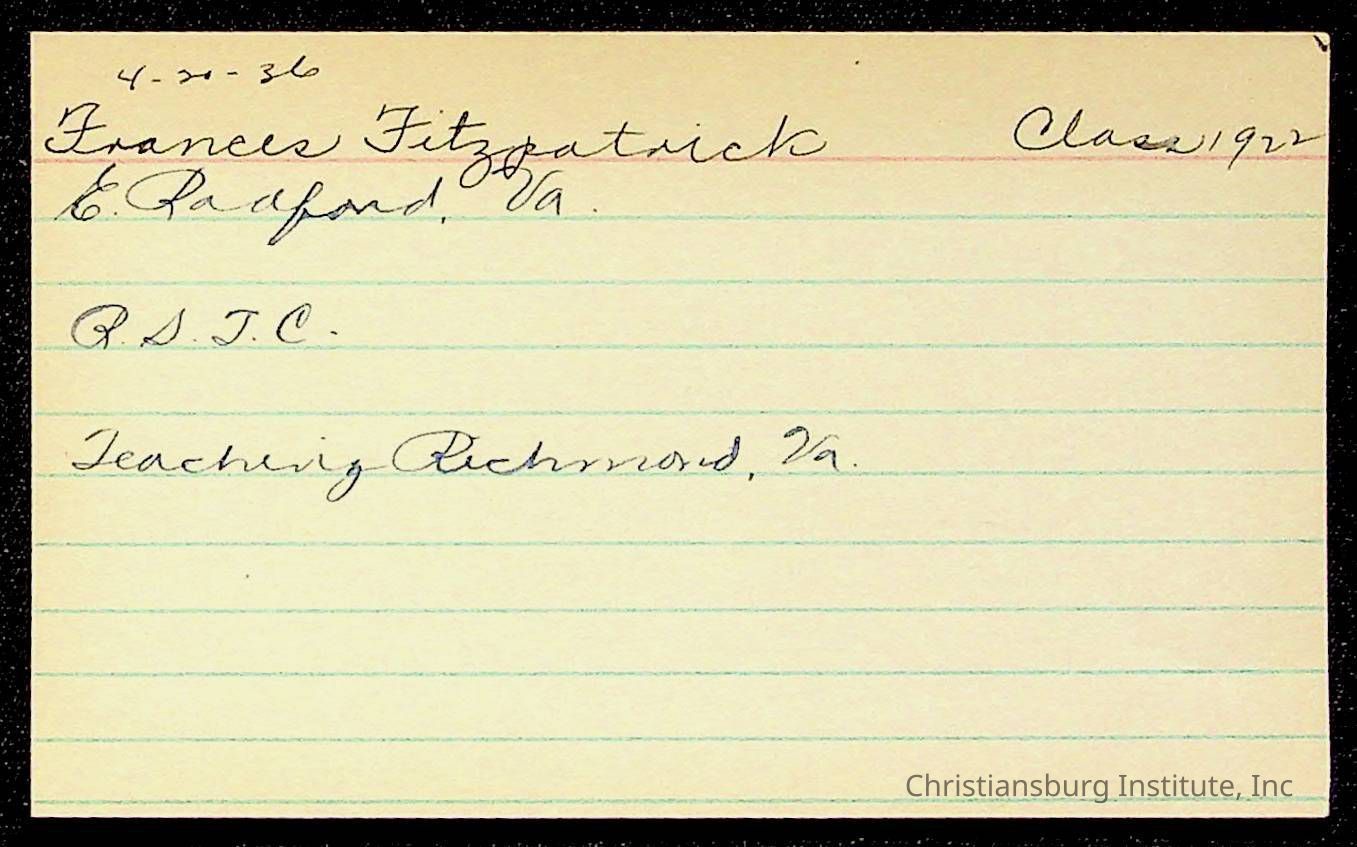 4-20-36
Frances Fitzpatrick Class 1922
E. Radford, Va.
R. S. T. C.
Teaching Richmond, Va.
Christiansburg Institute, Inc